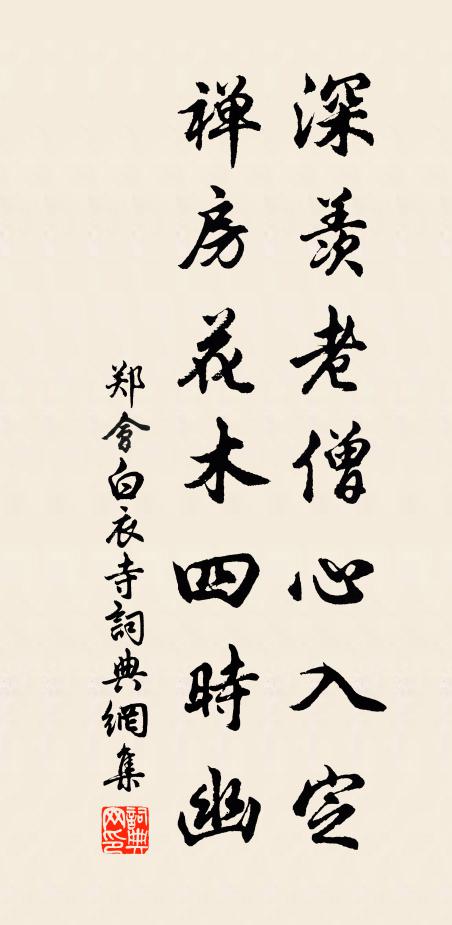 深羡老僧心入定
禅房花木四時幽
郑會白衣寺詞典網集
詞典
网印